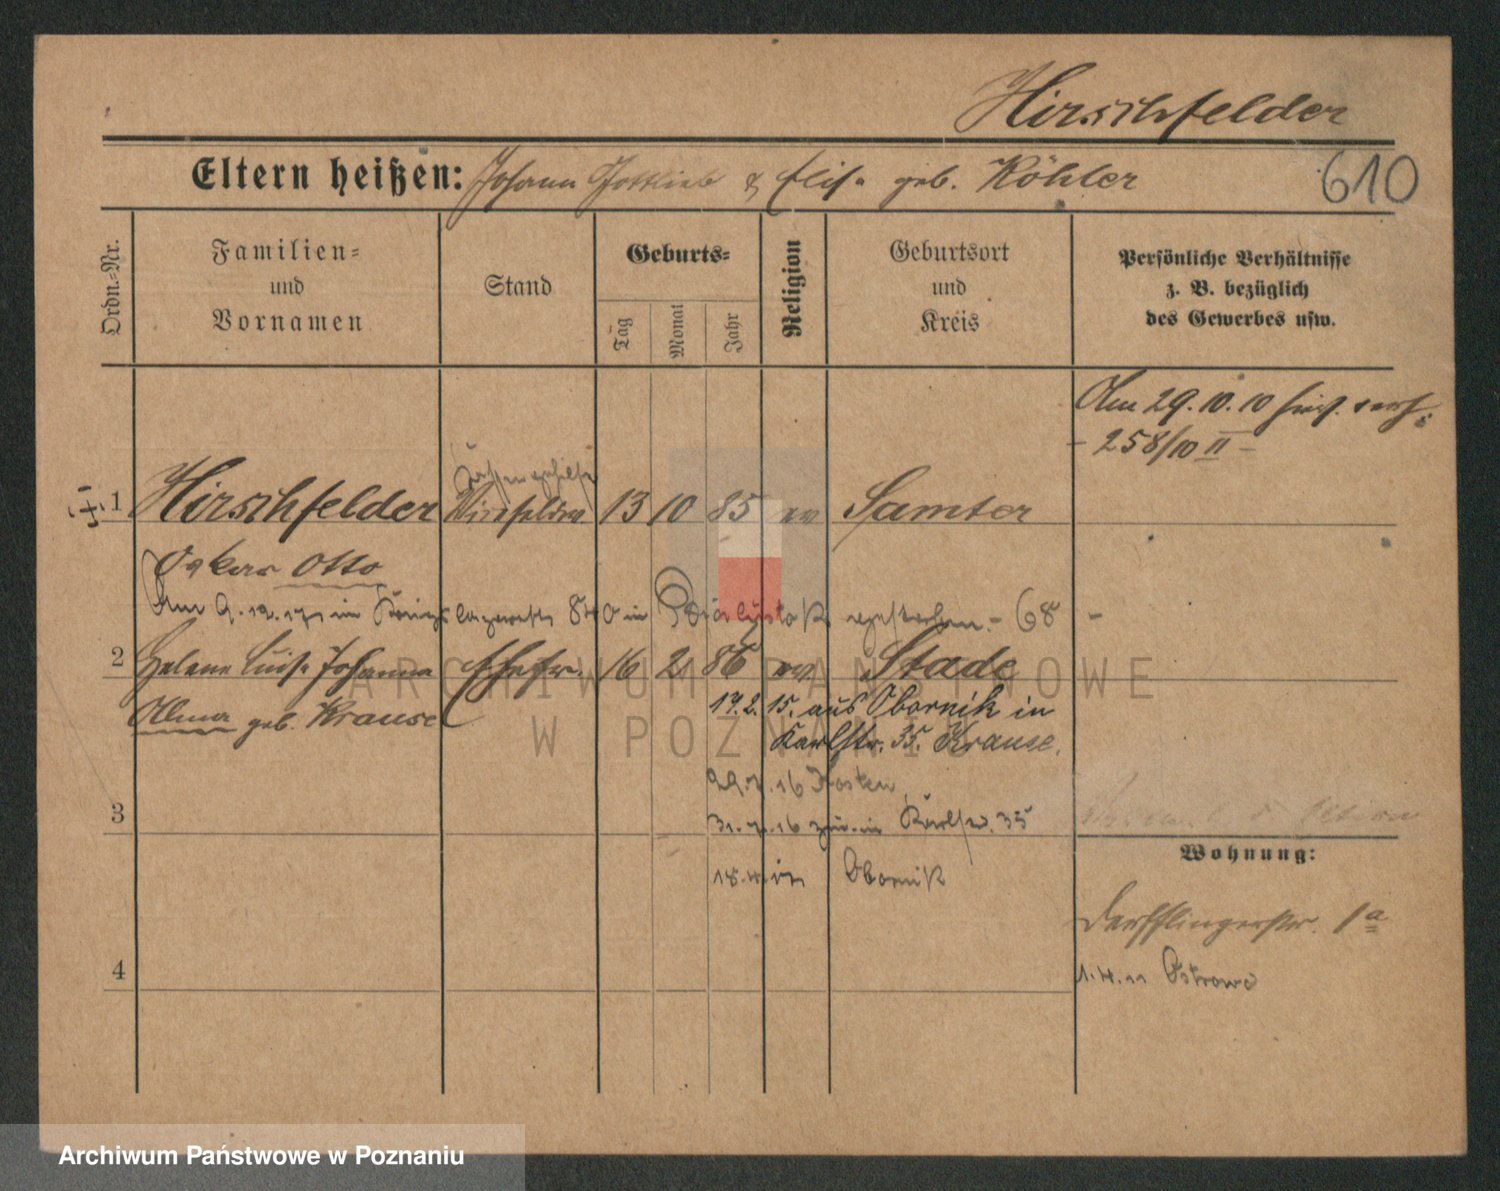 Hirschfelder
Eltern heißen: Johann Gottlieb & Elise geb. Köhler
610
Ordn.-Nr.
Familien-
und
Vornamen
Stand
Geburts-
Tag
Monat
Jahr
Religion
Geburtsort
und
Kreis
Persönliche Verhältnisse
z. B. bezüglich
des Gewerbes usw.
Am 29.10.10 hier
258/10 II
1 Hirschfelder 13 10 85 ev Samter
Oskar Otto
Am 9.12.17 in 840 in gestorben. - 68 -
2 Helene Luise Johanna Ehefr. 16 2 86 ev. Stade
Alma geb. Krause
14.2.15. aus Obornik in
Karlstr. 35. Krause.
16 Kosten
3
31. 16 in Karlstr. 35
18.4.17 Obornik
Wohnung:
Derfflingerstr. 1a
4
1.4.11 Ostrowo
ARCHIWUM PAŃSTWOWE
W POZNANIU
Archiwum Państwowe w Poznaniu